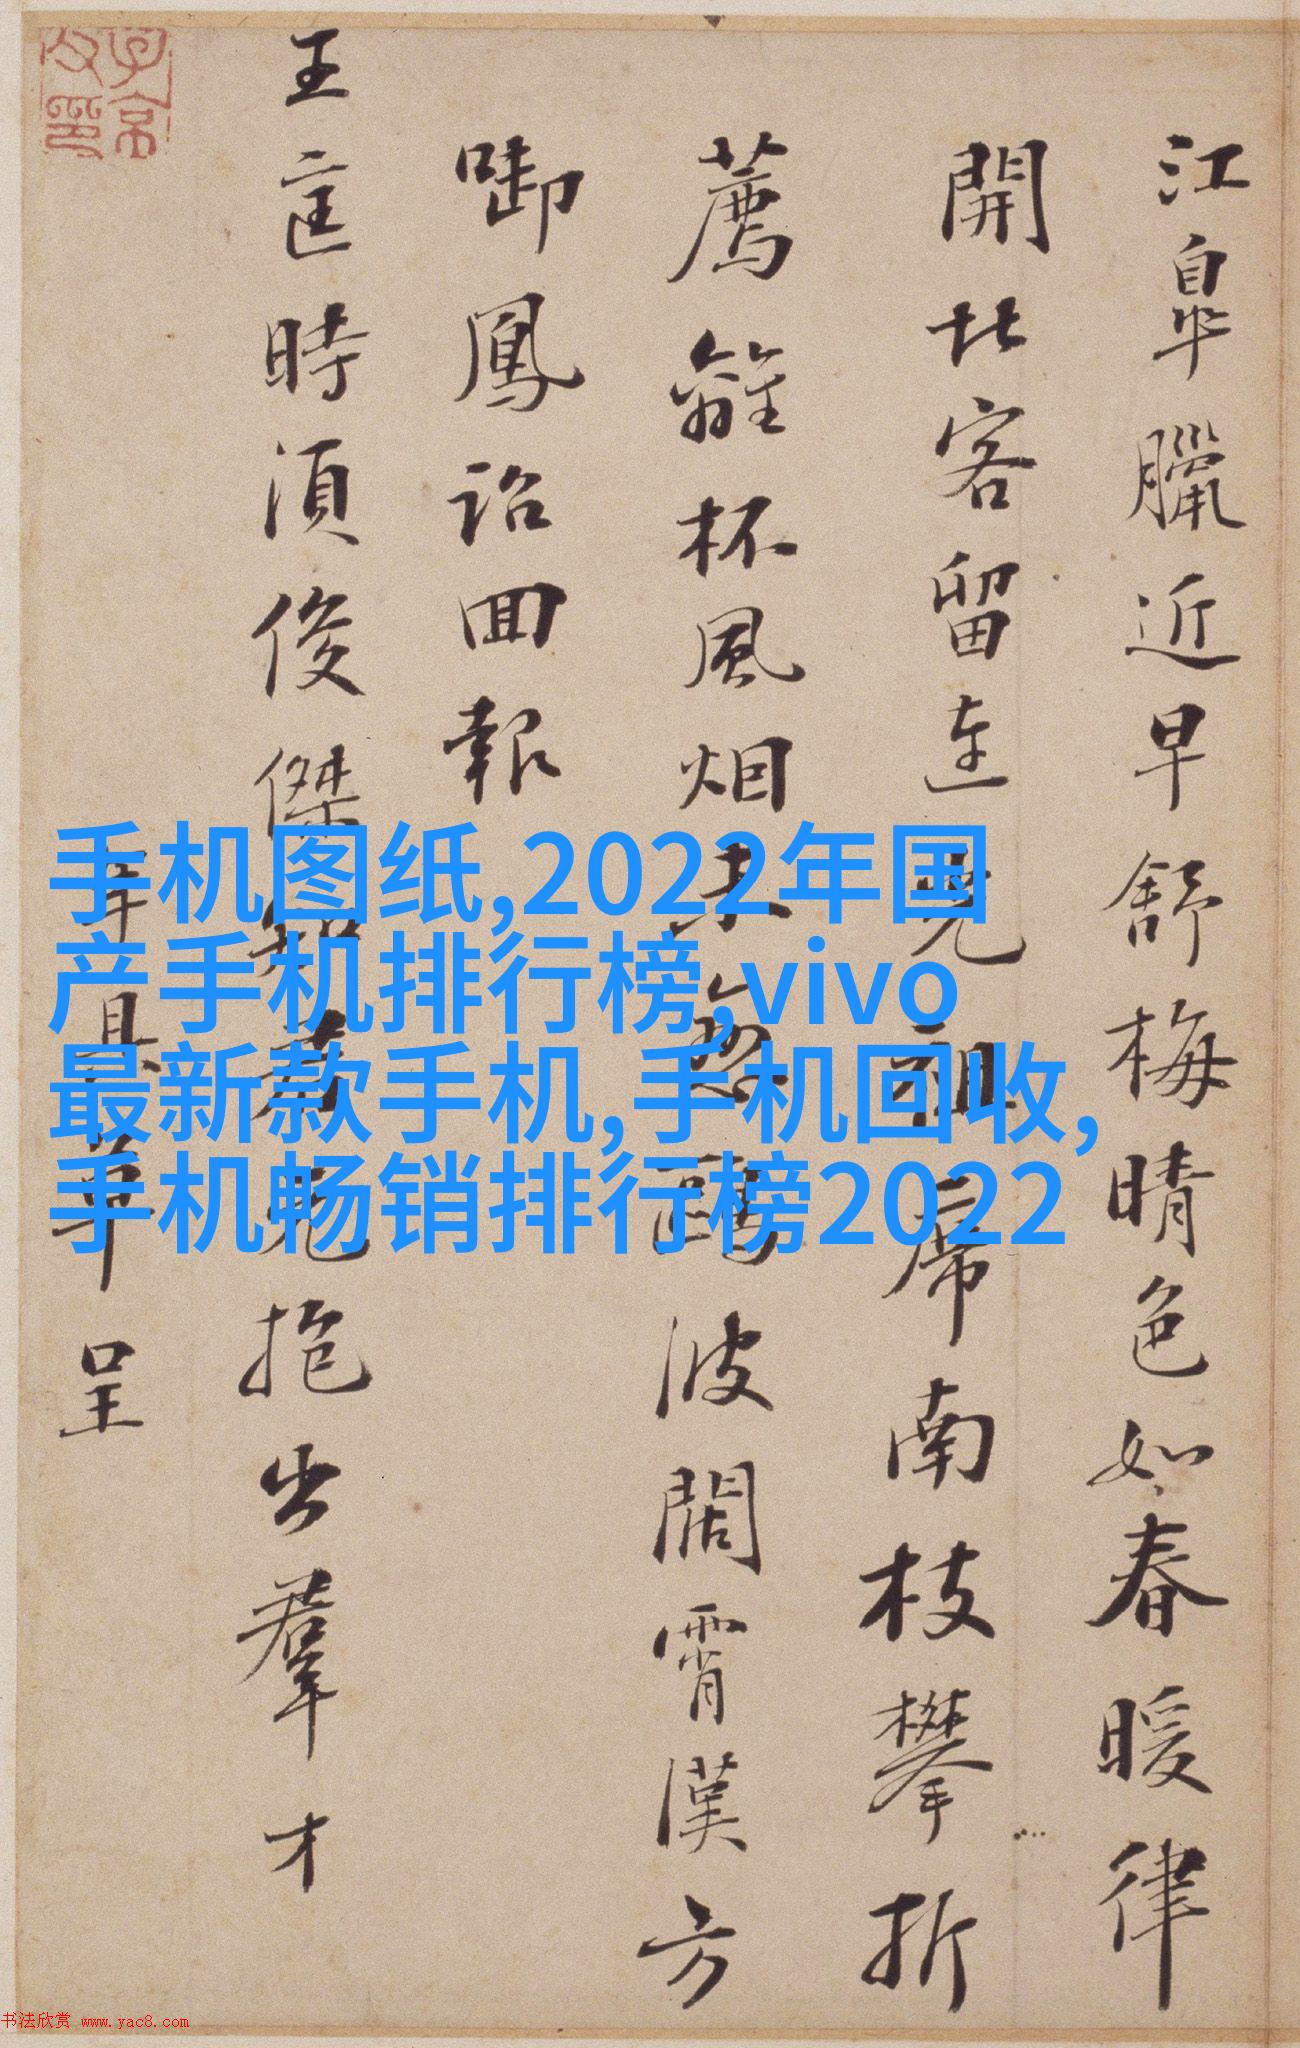 江皐臘近早舒梅晴色如春暖律
開北客留連祖席南枝攀折
薦離杯風烟未鷗波闊霄漢方
啣鳳詔囬報
王匡時須俊傑知君抱出羣才
具草呈
子京父印
手机图纸,2022年国
产手机排行榜,vivo
最新款手机,手机回收,
手机畅销排行榜2022
书法欣赏 www.yac8.com